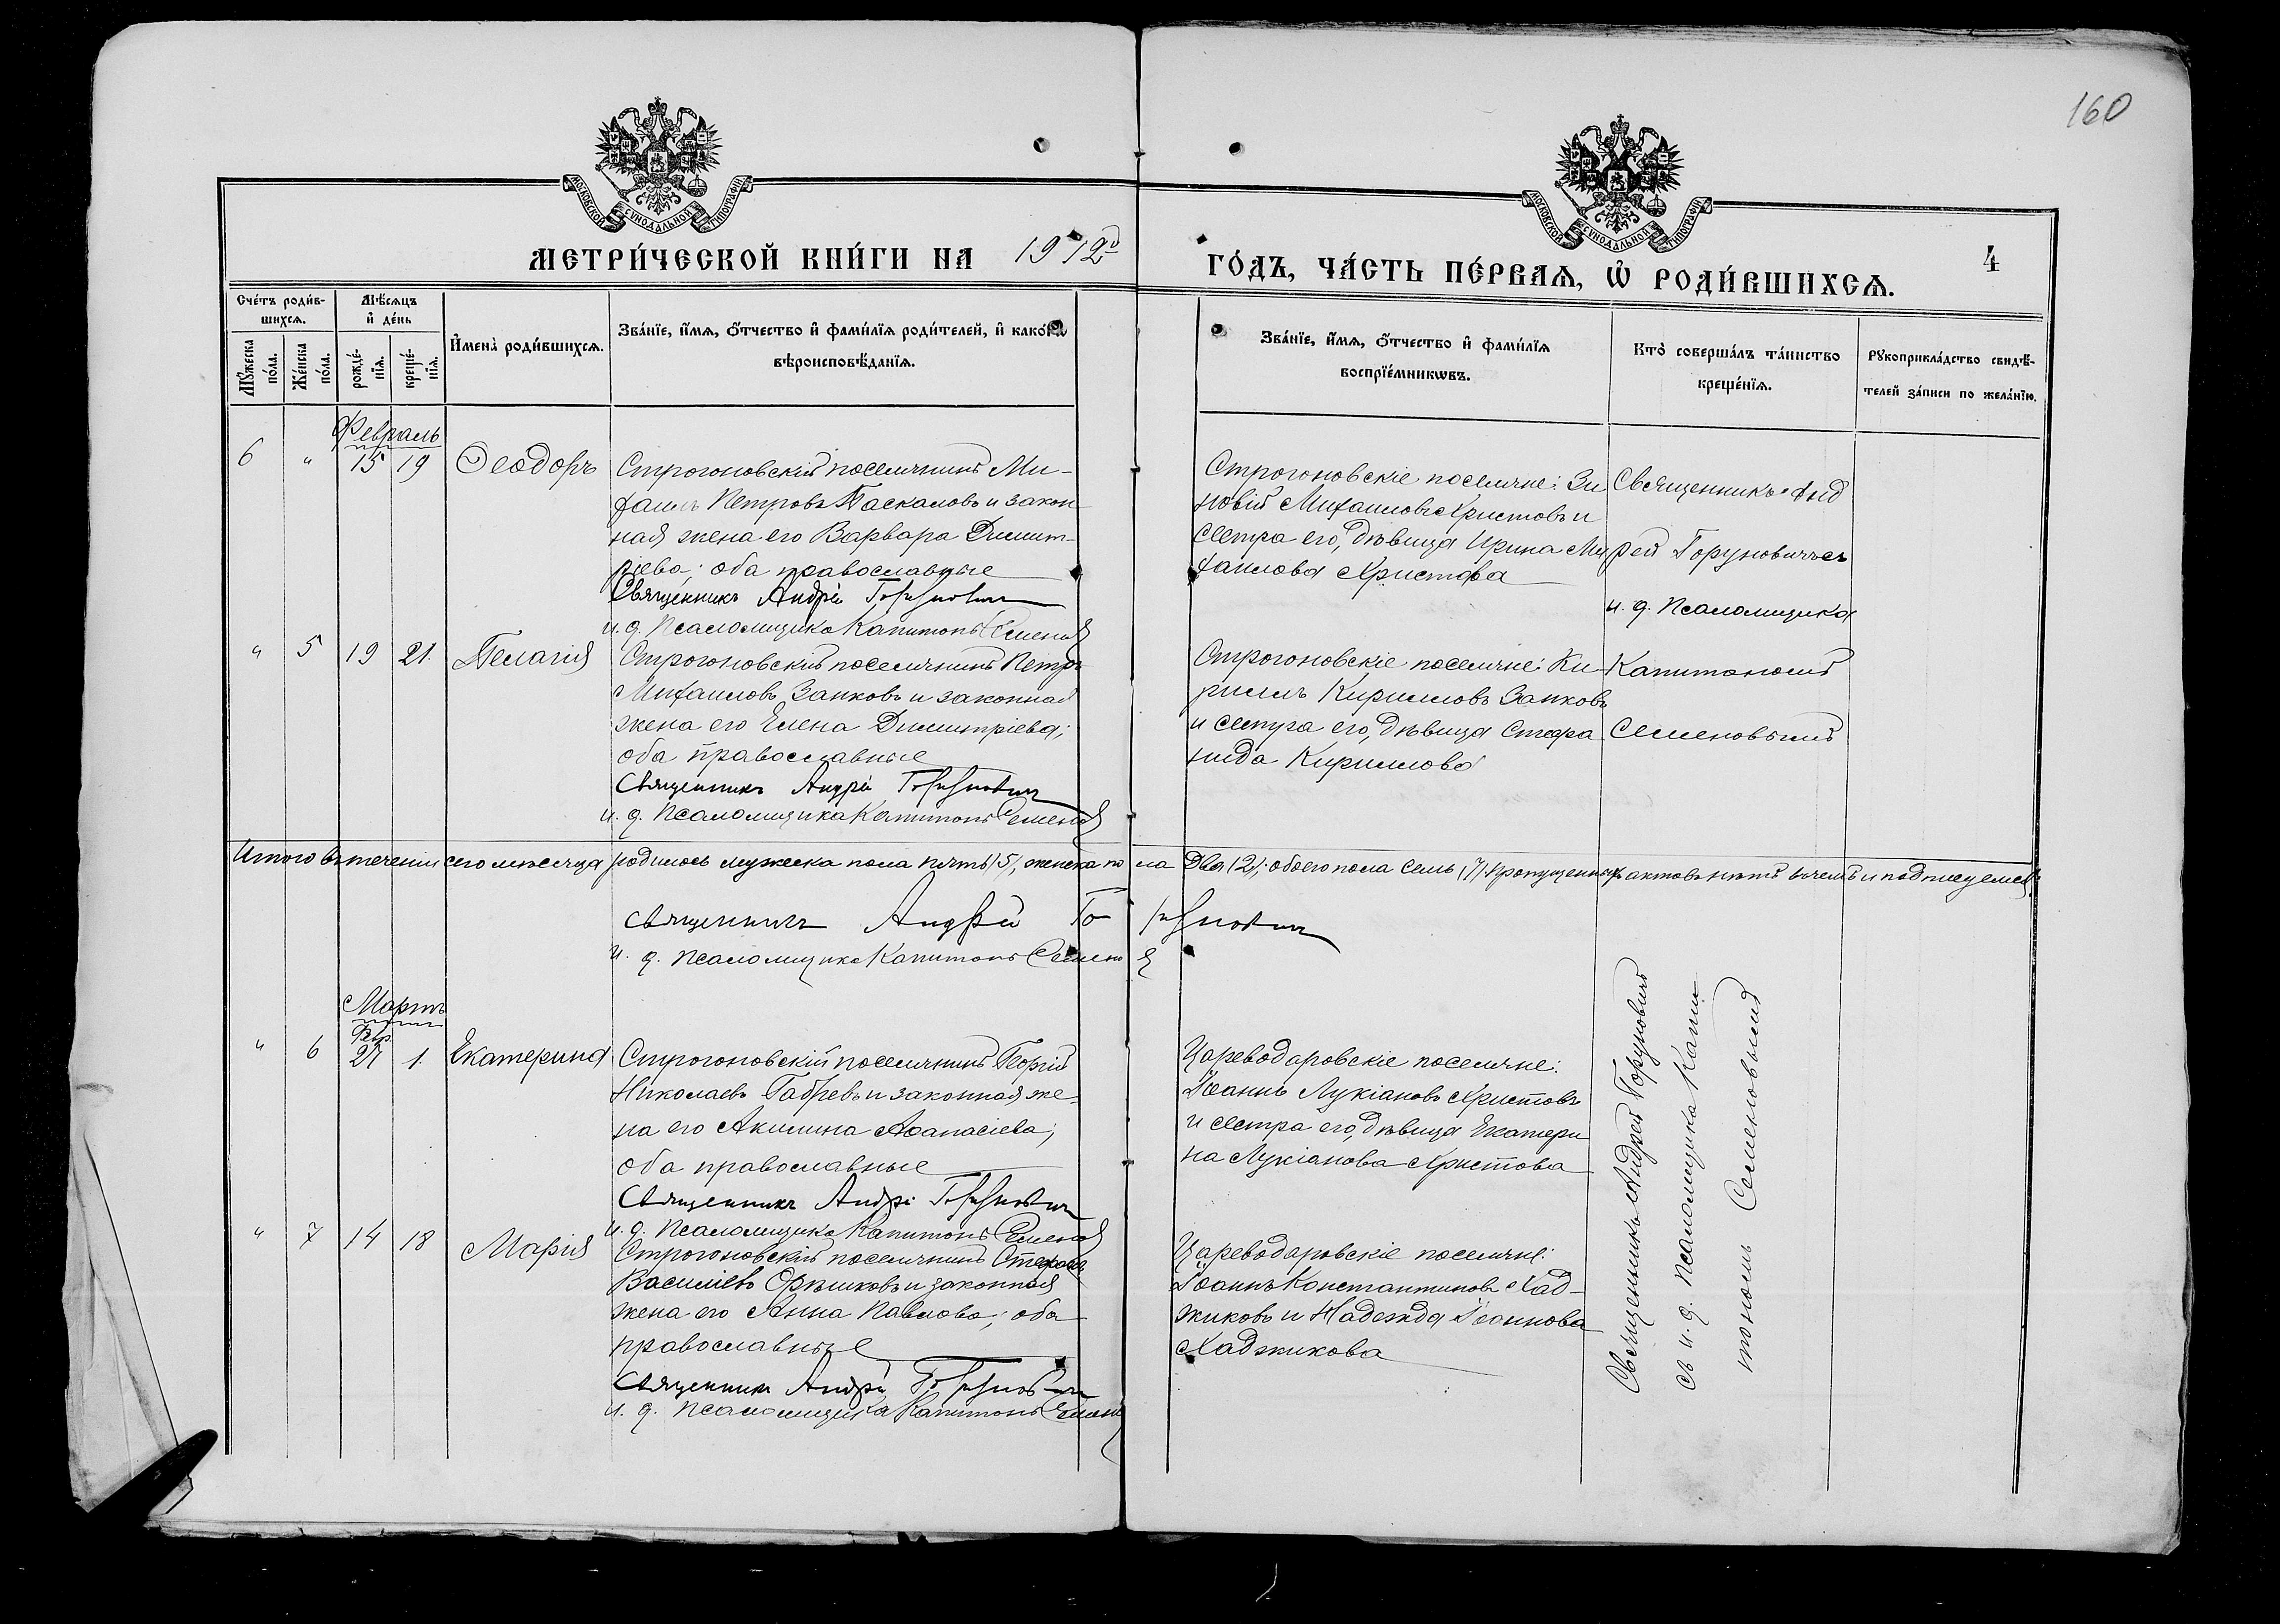 160
МОСКОВСКОЙ СУНОДАЛЬНОЙ ТИПОГРАФІИ
МОСКОВСКОЙ СУНОДАЛЬНОЙ ТИПОГРАФІИ
МЕТРИ́ЧЕСКОЙ КНИ́ГИ НА 1912й
ГО́ДЪ, ЧА́СТЬ ПЕ́РВАѦ, Ѡ҆ РОДИ́ВШИХСѦ.
4
Сче́тъ роди́в-
шихсѧ.
Мѣ́сѧцъ
и҆ де́нь
Мꙋ́жеска
по́ла.
Же́нска
по́ла.
рожде́-
нїѧ.
креще́-
нїѧ.
И҆мена̀ роди́вшихсѧ.
Зва́нїе, и҆́мѧ, ѻ҆́тчество и҆ фами́лїѧ роди́телей, и҆ како́гѡ
вѣроисповѣ́данїѧ.
Зва́нїе, и҆́мѧ, ѻ҆́тчество и҆ фами́лїѧ
воспрїе́мникѡвъ.
Кто̀ соверша́лъ та́инство
креще́нїѧ.
Рꙋкоприкла́дство свидѣ́-
телей за́писи по жела́нїю.
Февраль
6 " 15 19 Ѳеодоръ
Строгоновскій поселянинъ Ми-
хаилъ Петровъ Паскаловъ и закон
ная жена его Варвара Димит-
ріева; оба православные
Священникъ Андрей Горуновичъ
и. д. Псаломщика Капитонъ Семенов
Строгоновскіе поселяне: Зи
новій Михаиловъ Христовъ и
сестра его, дѣвица Ирина Ми
хаилова Христова
Священникъ Анд
рей Горуновичъ съ
и. д. Псаломщика
Капитономъ
Семеновымъ
" 5 19 21. Пелагія
Строгоновскій поселянинъ Петръ
Михаиловъ Занковъ и законная
жена его Елена Димитріева;
оба православные
Священникъ Андрей Горуновичъ
и. д. Псаломщика Капитонъ Семенов
Строгоновскіе поселяне: Ки-
риллъ Кирилловъ Занковъ
и сестра его, дѣвица Стефа
нида Кириллова
Итого въ теченіи сего мѣсяца родилось мужеска пола пять (5), женска пола два (2); обоего пола семь (7). Пропущенныхъ актовъ нѣтъ въ чемъ и подписуемся:
Священникъ Андрей Горуновичъ
и. д. Псаломщика Капитонъ Семенов
Мартъ
Февр.
" 6 27 1. Екатерина
Строгоновскій поселянинъ Георгій
Николаевъ Габревъ и законная же-
на его Акилина Аѳанасіева;
оба православные
Священникъ Андрей Горуновичъ
и. д. Псаломщика Капитонъ Семенов
Цареводаровскіе поселяне:
Іоаннъ Лукіановъ Христовъ
и сестра его, дѣвица Екатери
на Лукіанова Христова
Священникъ Андрей Горуновичъ
съ и. д. Псаломщика Капи
тономъ Семеновымъ
" 7 14 18 Марія
Строгоновскій поселянинъ Стефанъ
Василіевъ Орѣшковъ и законная
жена его Анна Павлова; оба
православные
Священникъ Андрей Горуновичъ
и. д. Псаломщика Капитонъ Семенов
Цареводаровскіе поселяне:
Іоаннъ Константиновъ Хад-
жиковъ и Надежда Іоаннова
Хаджикова